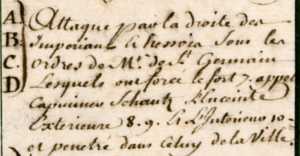 A. Attaque par la droite des
B. Imperiaux & hessois sous les
C. ordres de Mr. de St Germain
D. Lesquels ont forcé le fort 7. appel
Schantz
Exterieure 8. 9. & L'Interieure 10
et penetré dans Celuy de la Ville.